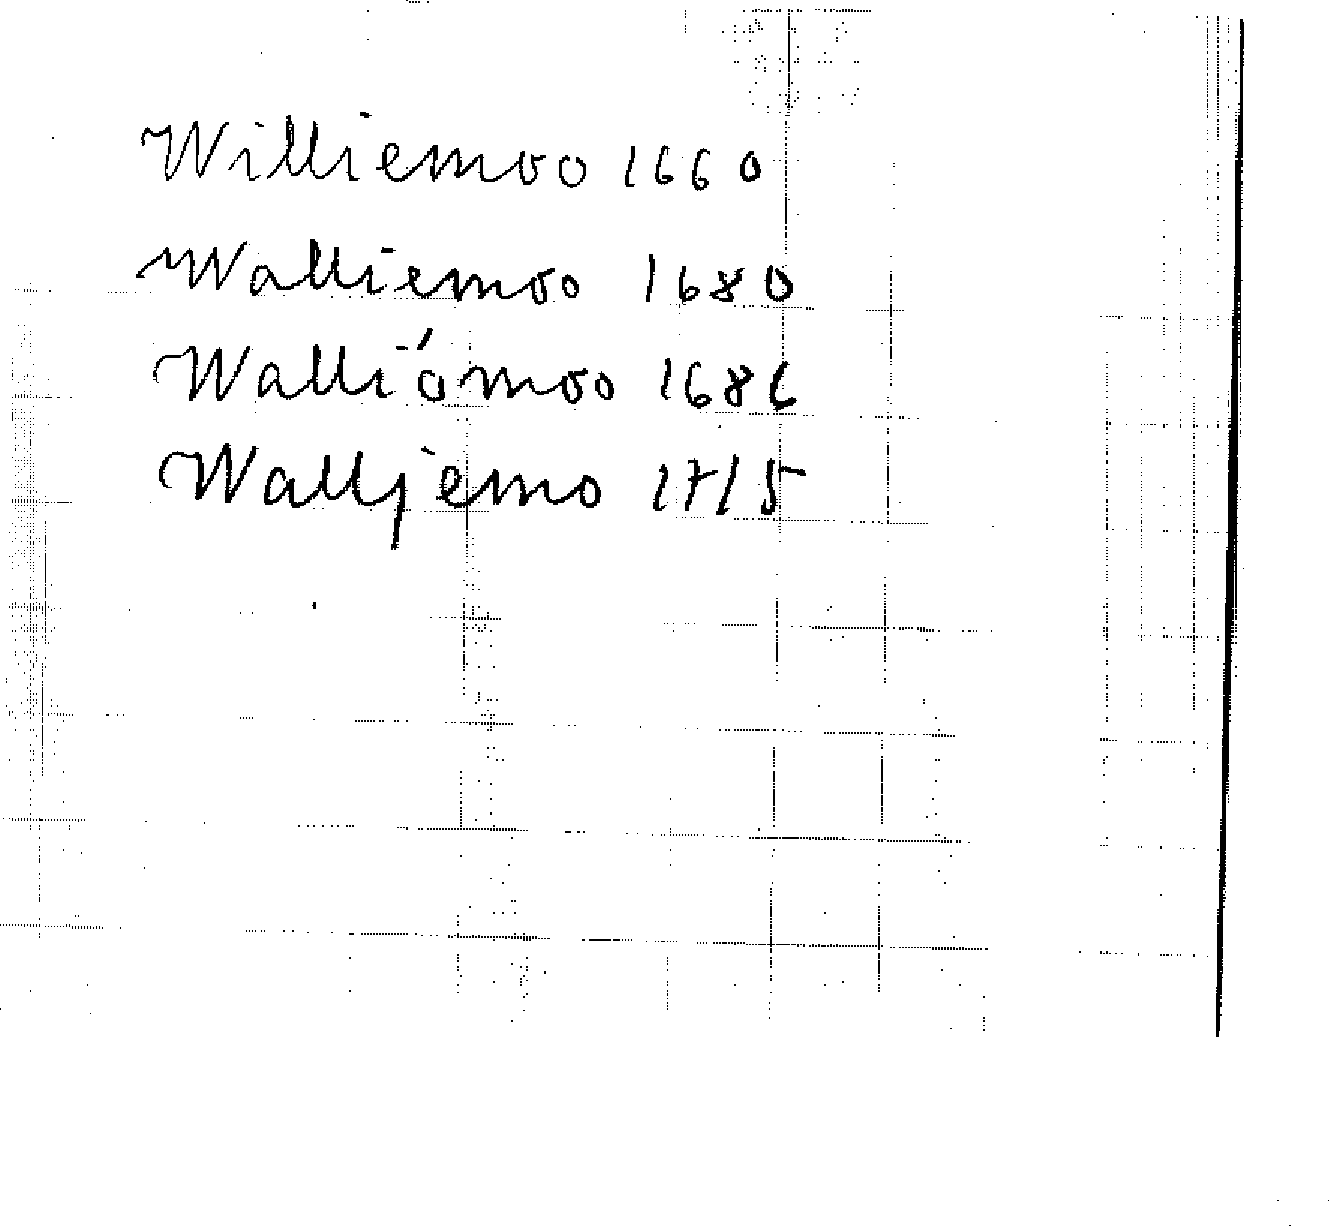 Williemoo 1660
Walliemoo 1680
Walliómoo 1686
Walljemo 1715